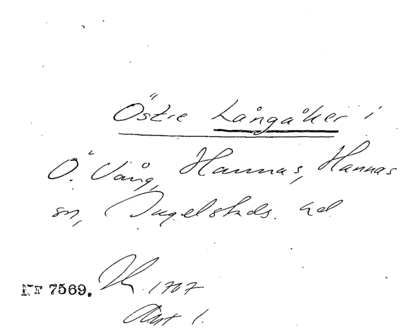 Östre Långåker i
Ö. Vång, Hannas, Hannas
sn, Ingelstads hd
NF 7569. 1707
Akt 1.